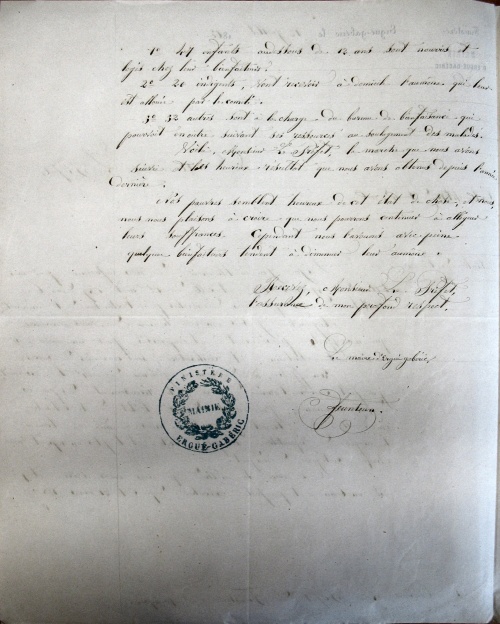 1° 47 enfants au dessous de 12 ans sont nourris et
logés chez leur bienfaiteurs.
2° 20 indigents, vont recevoir à domicile l'aumône qui leur
est allouée par le comité.
3° 32 autres sont à la charge du bureau de bienfaisance qui
pourvoit en outre suivant ses ressources au soulagement des malades.
Voilà, Monsieur Le Préfet, la marche que nous avons
suivie et les heureux résultat que nous avons obtenus depuis l'année
dernière.
Nos pauvres semblent heureux de cet état de chose, et nous
nous nous plaisons à croire que nous pourrons continuer à alléger
leurs souffrances. Cependant nous l'avouons avec peine
quelques bienfaiteurs tendent à diminuer leur aumône.
Recevez, Monsieur Le Préfet,
l'assurance de mon profond respect,
Le maire d'Ergué-gabéric,
FINISTÈRE
MAIRIE
ERGUÉ-GABÉRIC